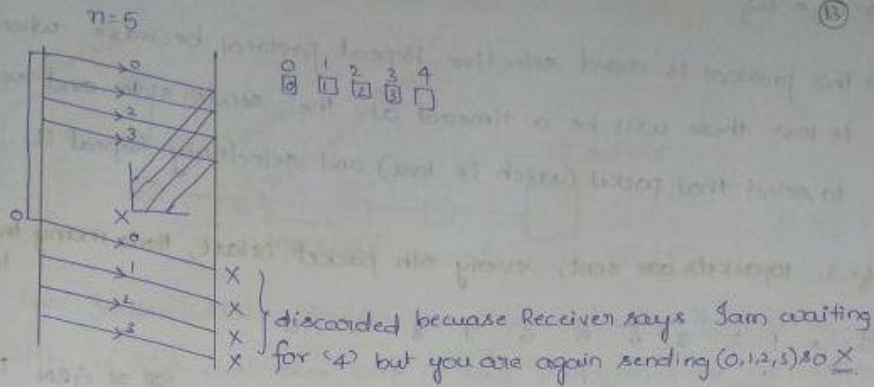 13
n=5
0 1 2 3 4
0 1 2 3
0
1
2
3
X
0
0
1
2
3
X
X
X
X
discarded becuase Receiver says Iam waiting
for '4' but you are again sending (0,1,2,3) so X